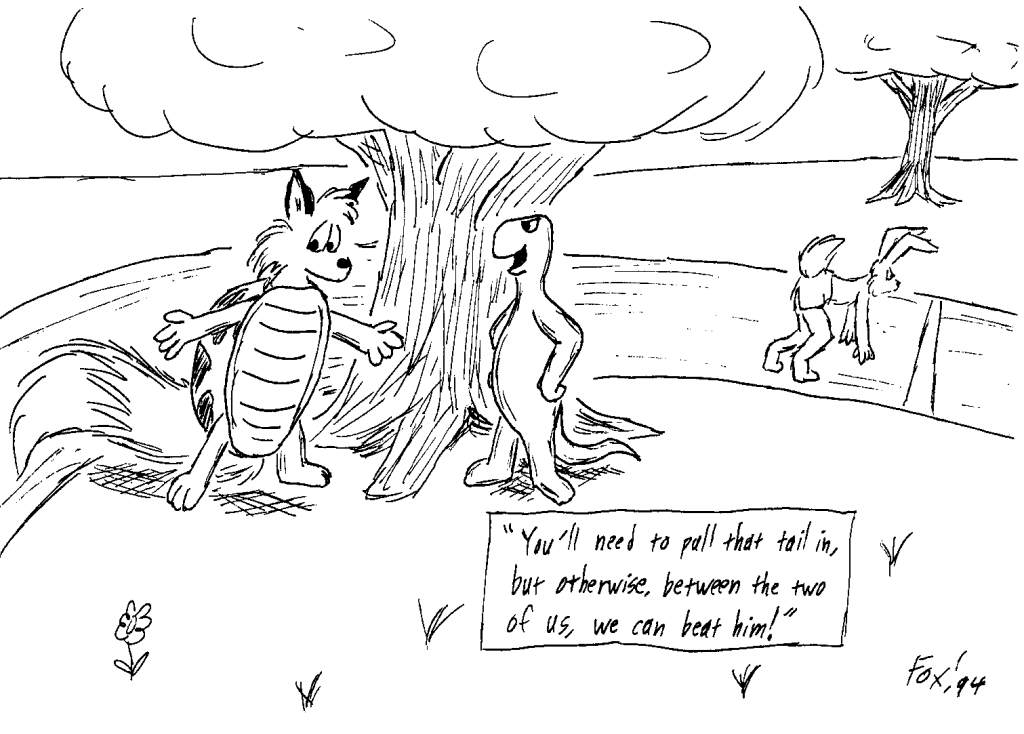 "You'll need to pull that tail in,
but otherwise, between the two
of us, we can beat him!"
Fox, '94